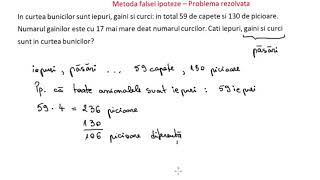 Metoda falsei ipoteze – Problema rezolvata
In curtea bunicilor sunt iepuri, gaini si curci: in total 59 de capete si 130 de picioare.
Numarul gainilor este cu 17 mai mare deat numarul curcilor. Cati iepuri, gaini si curci
sunt in curtea bunicilor?
păsări
iepuri, păsări ... 59 capete, 130 picioare
Îp. că toate animalele sunt iepuri : 59 iepuri
59 · 4 = 236 picioare
130
106 picioare diferență